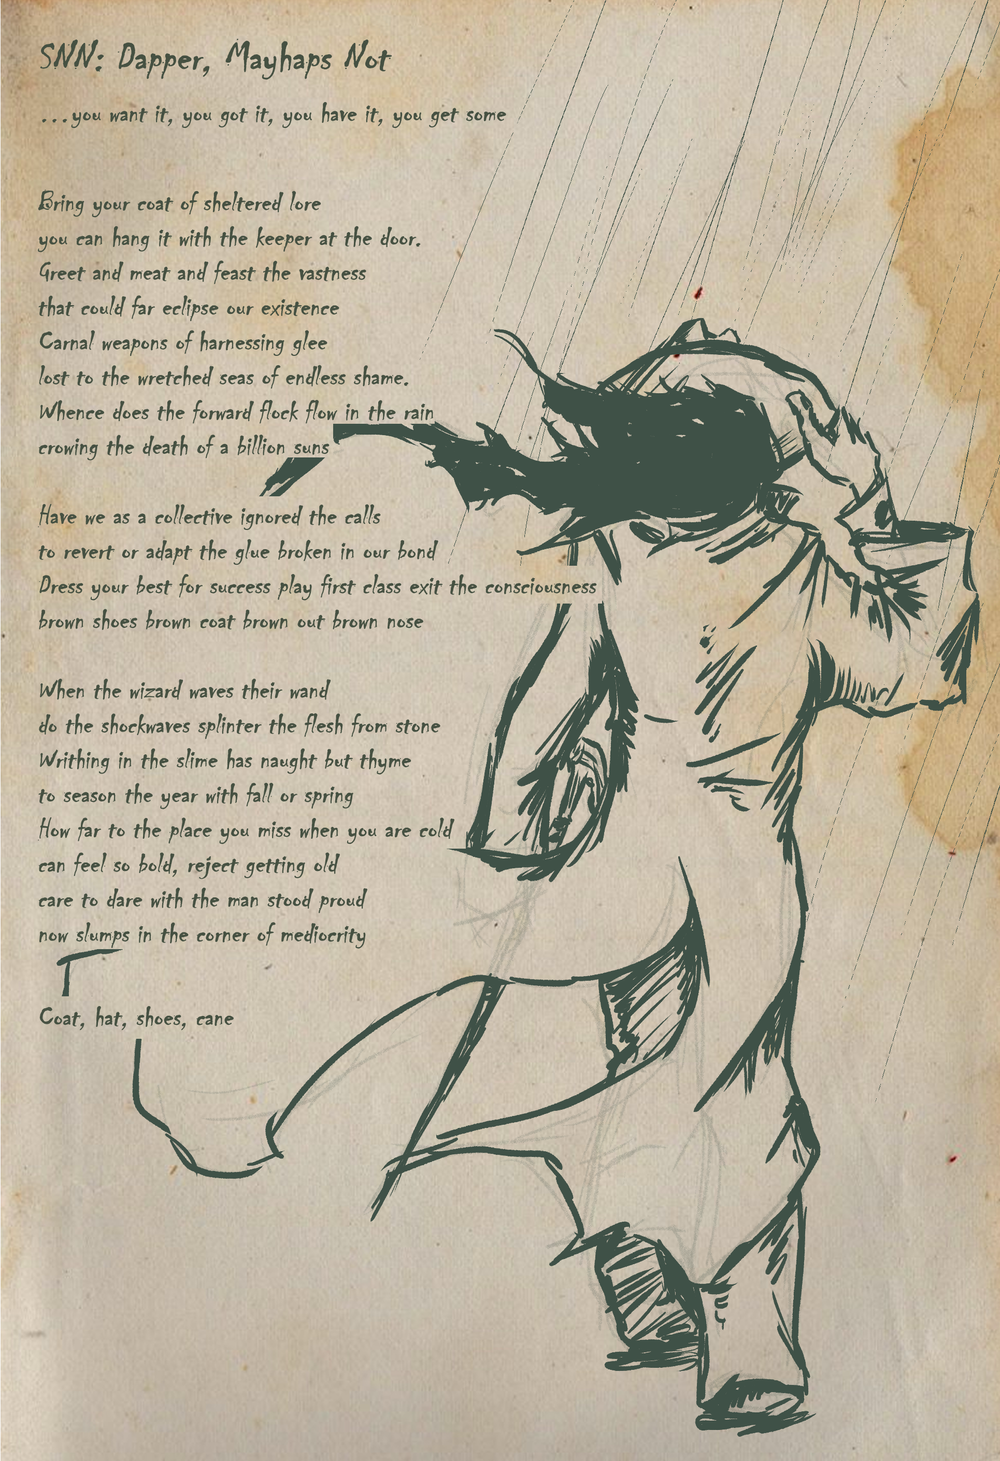 SNN: Dapper, Mayhaps Not
...you want it, you got it, you have it, you get some
Bring your coat of sheltered lore
you can hang it with the keeper at the door.
Greet and meat and feast the vastness
that could far eclipse our existence
Carnal weapons of harnessing glee
lost to the wretched seas of endless shame.
Whence does the forward flock flow in the rain
crowing the death of a billion suns
Have we as a collective ignored the calls
to revert or adapt the glue broken in our bond
Dress your best for success play first class exit the consciousness
brown shoes brown coat brown out brown nose
When the wizard waves their wand
do the shockwaves splinter the flesh from stone
Writhing in the slime has naught but thyme
to season the year with fall or spring
How far to the place you miss when you are cold
can feel so bold, reject getting old
care to dare with the man stood proud
now slumps in the corner of mediocrity
Coat, hat, shoes, cane